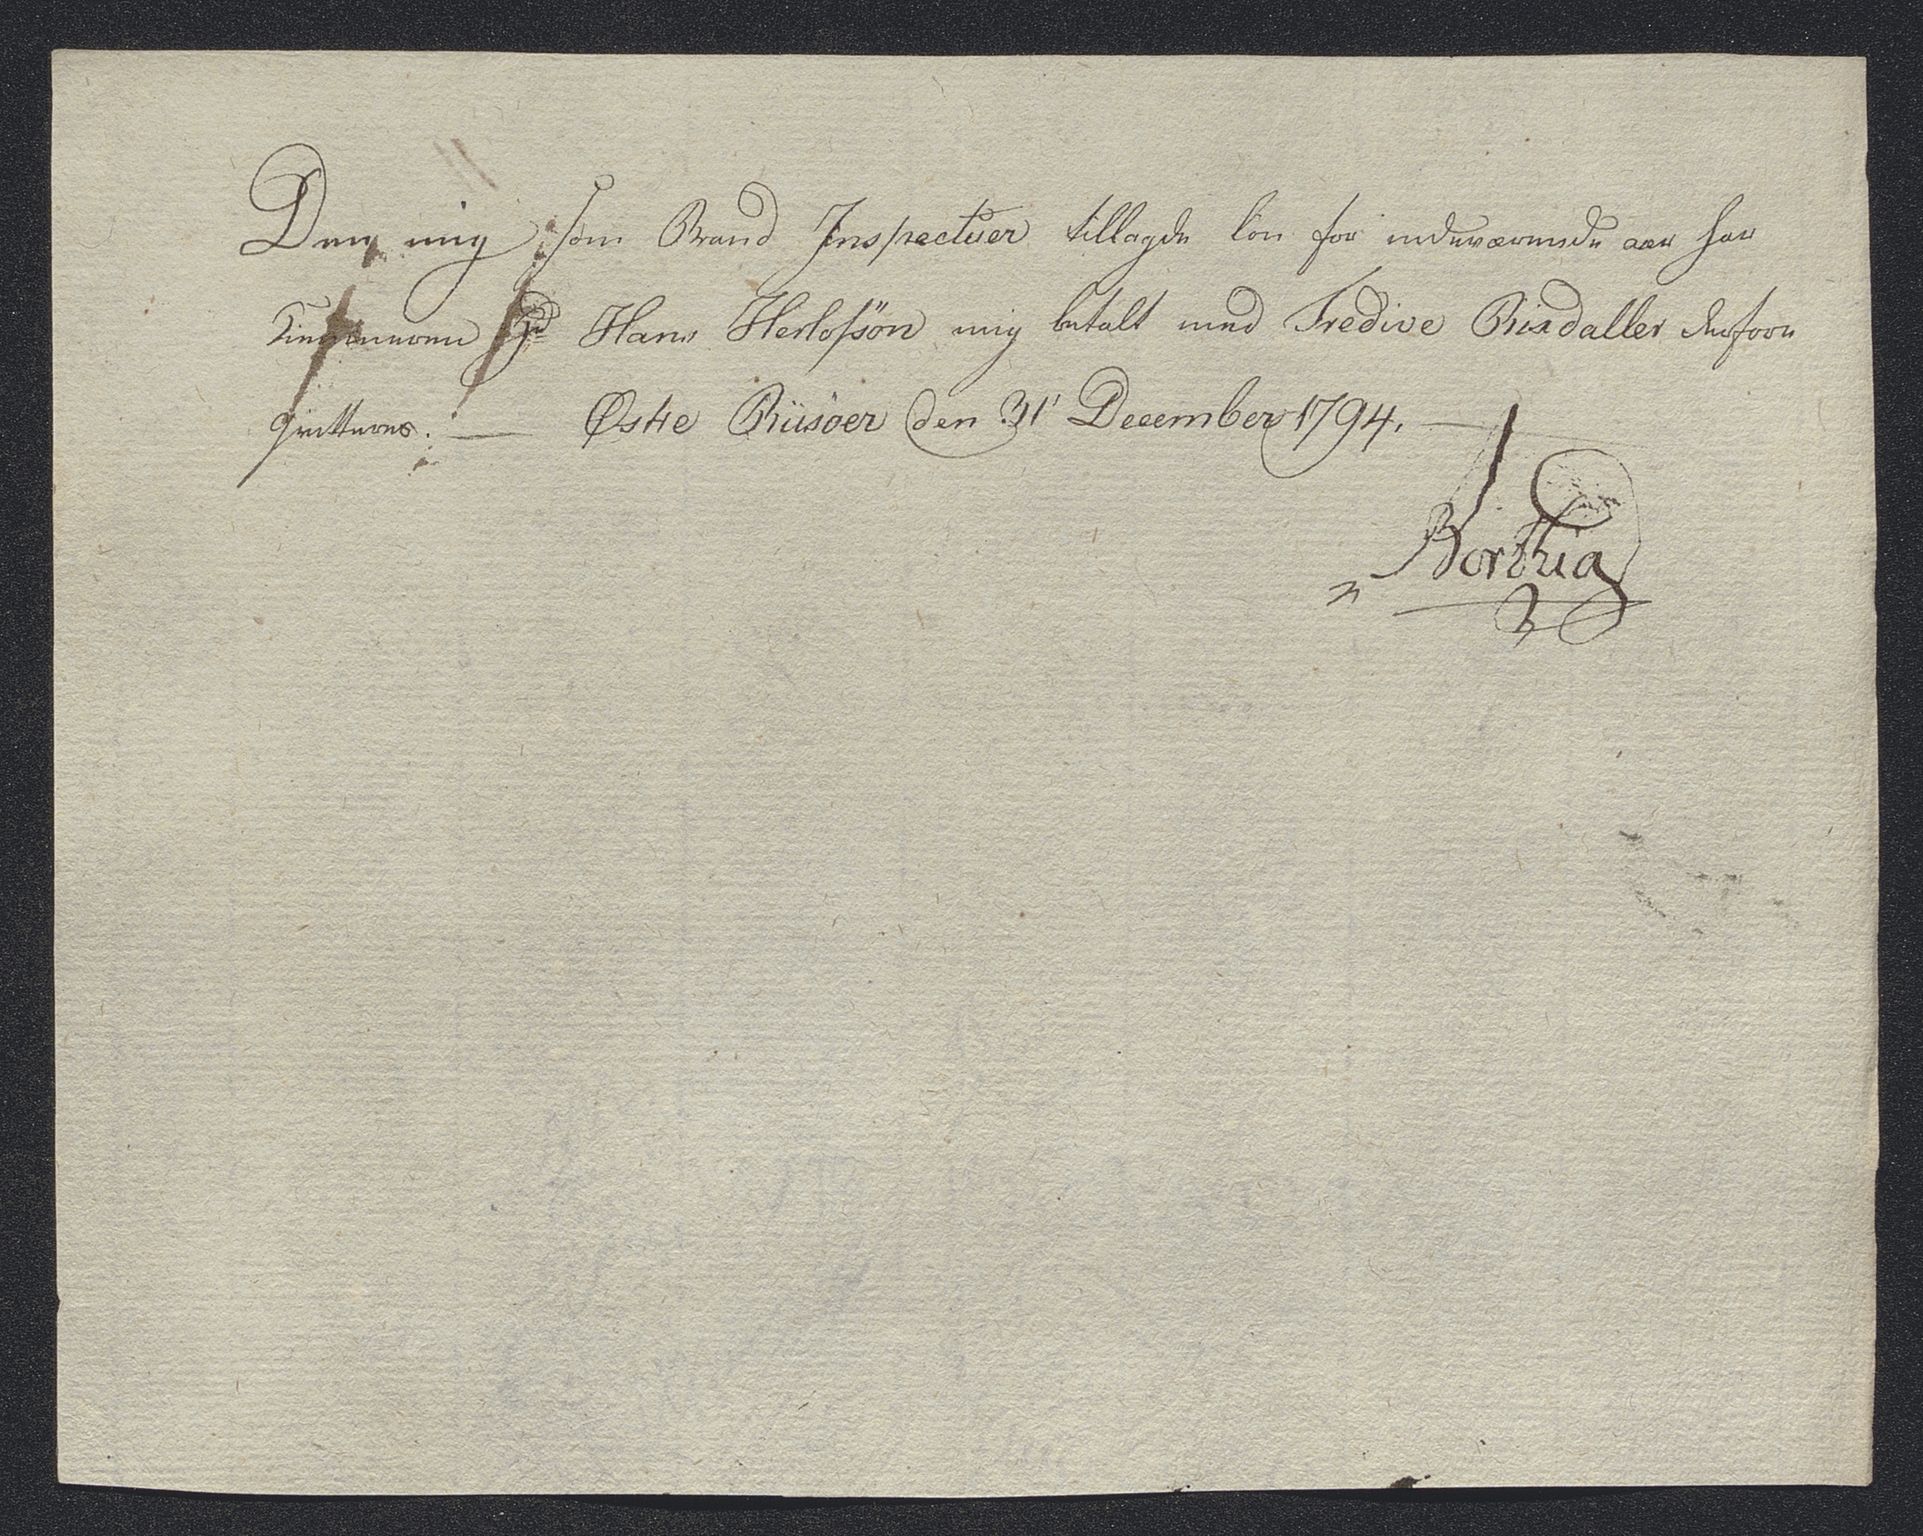 Den mig som Brand Inspecteur tillagde lön for indeværende aar har
Kiemneren Sr Hans Herlofsön mig betalt med Tredive Rixdaller derfore
qvitteres. — Østre Riisöer den 31' December 1794.
Borthig